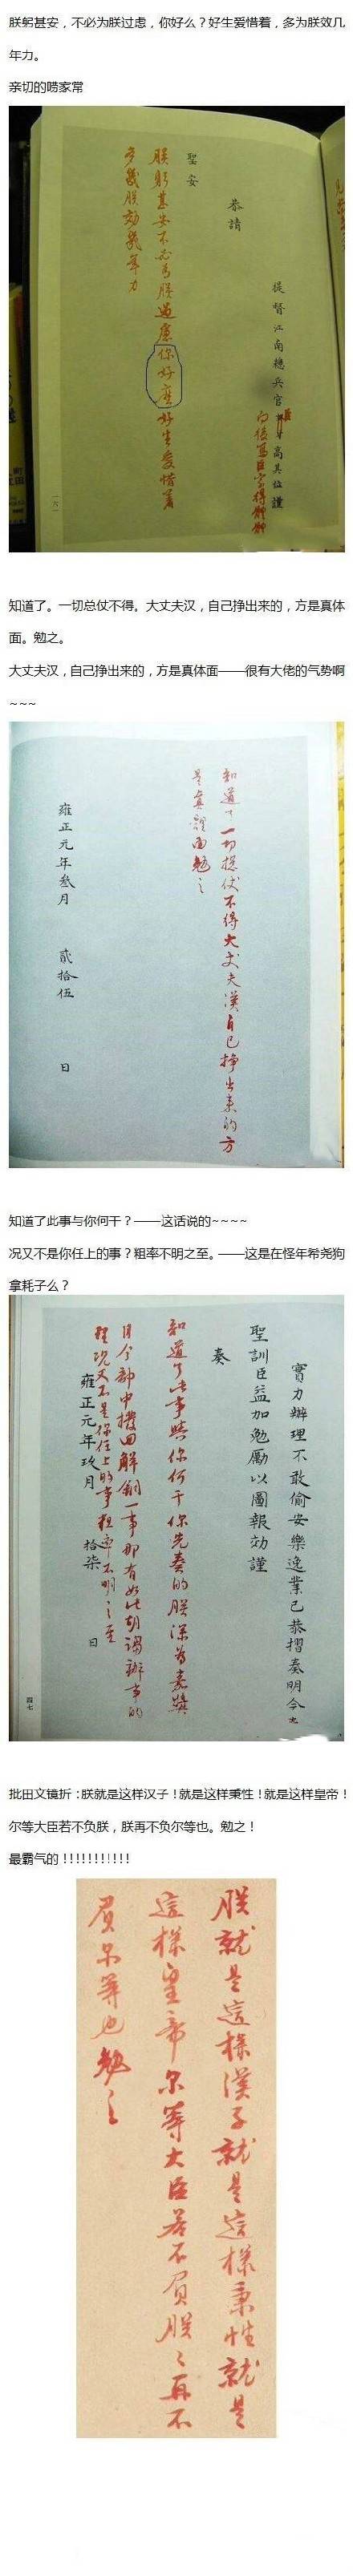 朕躬甚安，不必为朕过虑，你好么？好生爱惜着，多为朕效几
年力。
亲切的唠家常
提督江南總兵官臣高其位謹
向後寫臣字得體
恭請
聖安
朕躬甚安不必為朕過慮你好麽好生愛惜著
多幾朕効幾年力
一六一
知道了。一切总仗不得。大丈夫汉，自己挣出来的，方是真体
面。勉之。
大丈夫汉，自己挣出来的，方是真体面——很有大佬的气势啊
~~~
知道了一切總仗不得大丈夫漢自己掙出来的方
是真體面勉之
雍正元年叁月 貳拾伍 日
知道了此事与你何干？——这话说的~~~~
况又不是你任上的事？粗率不明之至。——这是在怪年希尧狗
拿耗子么？
實力辦理不敢偷安樂逸業已恭摺奏明今
聖訓臣益加勉勵以圖報効謹
奏
知道了此事與你何干你先奏的朕深為嘉獎
目今部中撥回解銅一事那有如此胡謅辦事的
理况又不是你任上的事粗率不明之至
雍正元年玖月 拾柒 日
四七
批田文镜折：朕就是这样汉子！就是这样秉性！就是这样皇帝！
尔等大臣若不负朕，朕再不负尔等也。勉之！
最霸气的！！！！！！！！！！！
朕就是這樣漢子就是這樣秉性就是
這樣皇帝尔等大臣若不負朕朕再不
負尔等也勉之